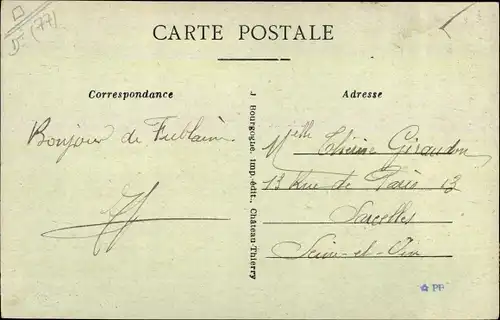 (77)
CARTE POSTALE
Correspondance
Adresse
Bonjour de Fublaines
J Bourgogne, imp.-édit., Château-Thierry
Melle Giraudon
13 Rue de Paris 13
Sarcelles
Seine-et-Oise
PF